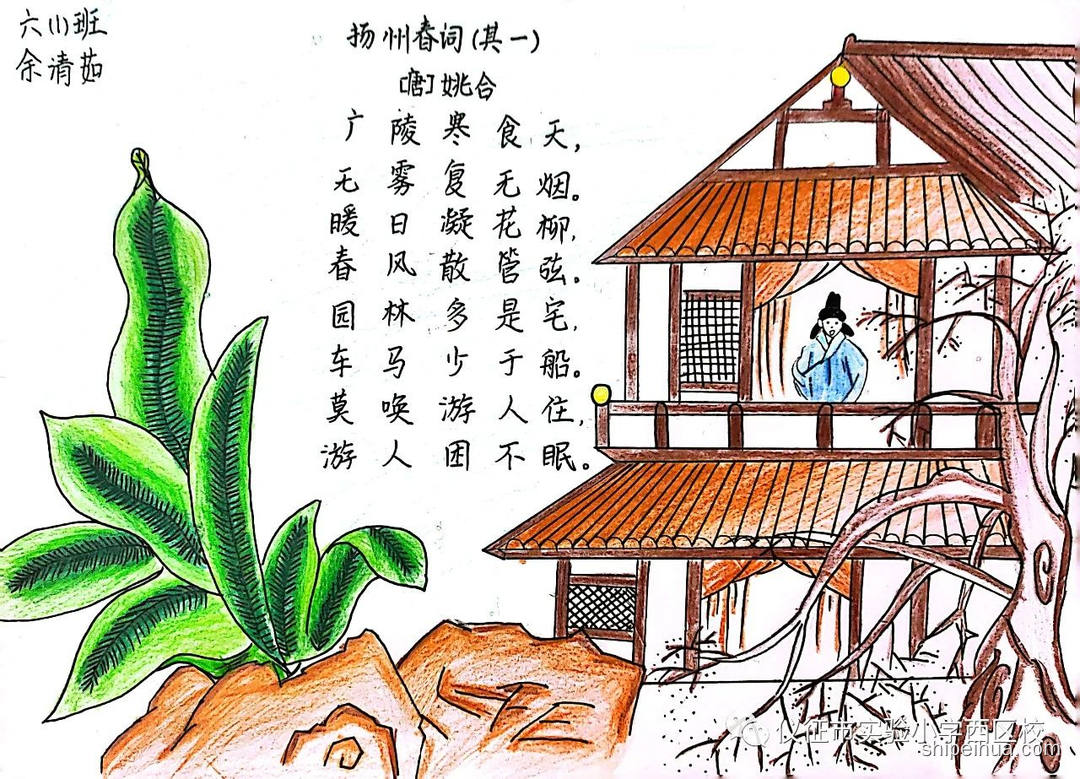 六(1)班
余清茹
扬州春词(其一)
[唐]姚合
广陵寒食天,
无雾复无烟。
暖日凝花柳,
春风散管弦。
园林多是宅,
车马少于船。
莫唤游人住,
游人困不眠。
仪征市实验小学西区校
shipeihua.com